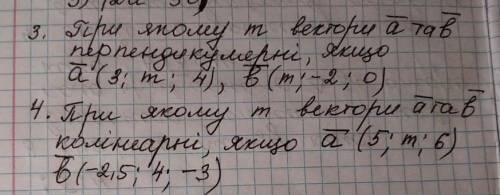 3. При якому m вектори a̅ та b̅
перпендикулярні, якщо
a̅ (3; m; 4), b̅ (m; -2; 0)
4. При якому m вектори a̅ та b̅
колінеарні, якщо a̅ (5; m; 6)
b̅ (-2,5; 4; -3)